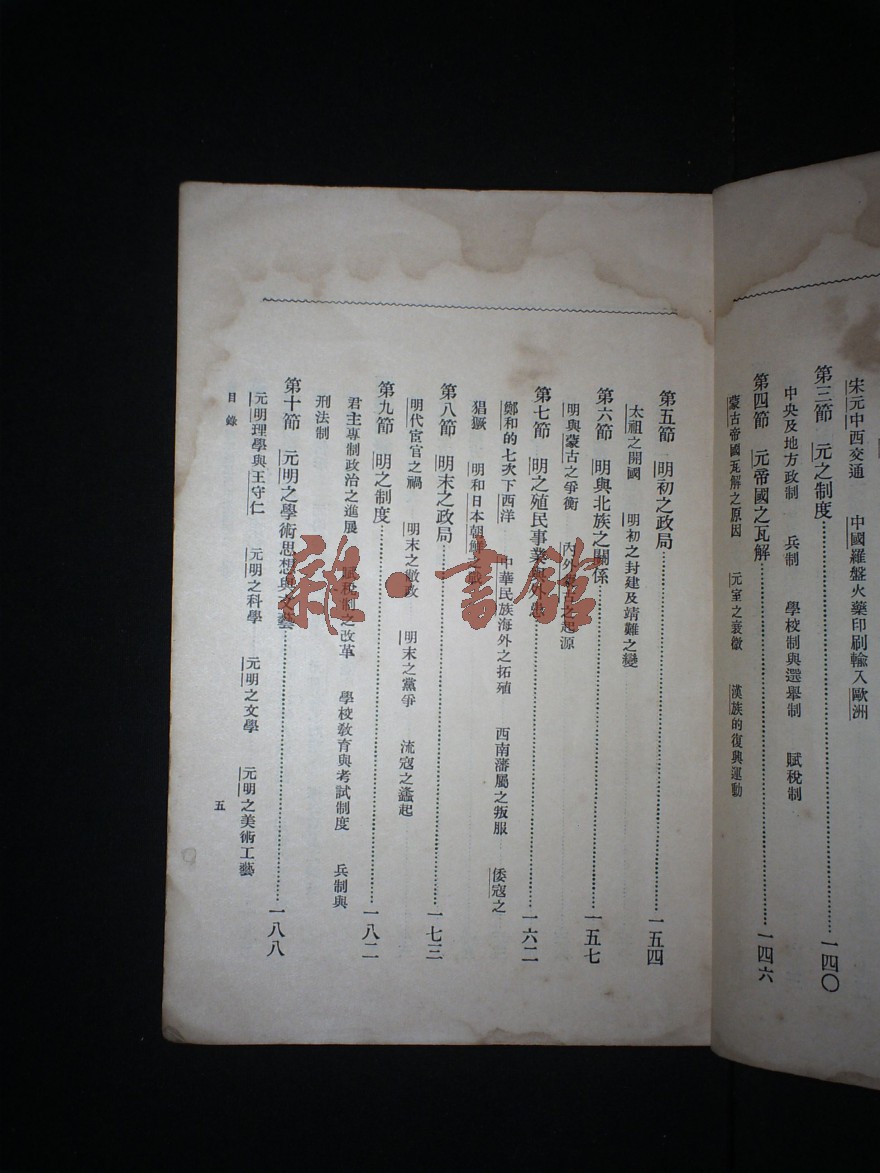 宋元中西交通　中國羅盤火藥印刷輸入歐洲
第三節　元之制度……一四〇
中央及地方政制　兵制　學校制與選舉制　賦稅制
第四節　元帝國之瓦解……一四六
蒙古帝國瓦解之原因　元室之衰微　漢族的復興運動
第五節　明初之政局……一五四
太祖之開國　明初之封建及靖難之變
第六節　明與北族之關係……一五七
明與蒙古之爭衡　內外蒙古之起源
第七節　明之殖民事業與外患……一六二
鄭和的七次下西洋　中華民族海外之拓殖　西南藩屬之叛服　倭寇之
猖獗　明和日本朝鮮之戰
第八節　明末之政局……一七三
明代宦官之禍　明末之敝政　明末之黨爭　流寇之蠭起
第九節　明之制度……一八二
君主專制政治之進展　賦稅制之改革　學校教育與考試制度　兵制與
刑法制
第十節　元明之學術思想與文藝……一八八
元明理學與王守仁　元明之科學　元明之文學　元明之美術工藝
目錄
五
雜·書館